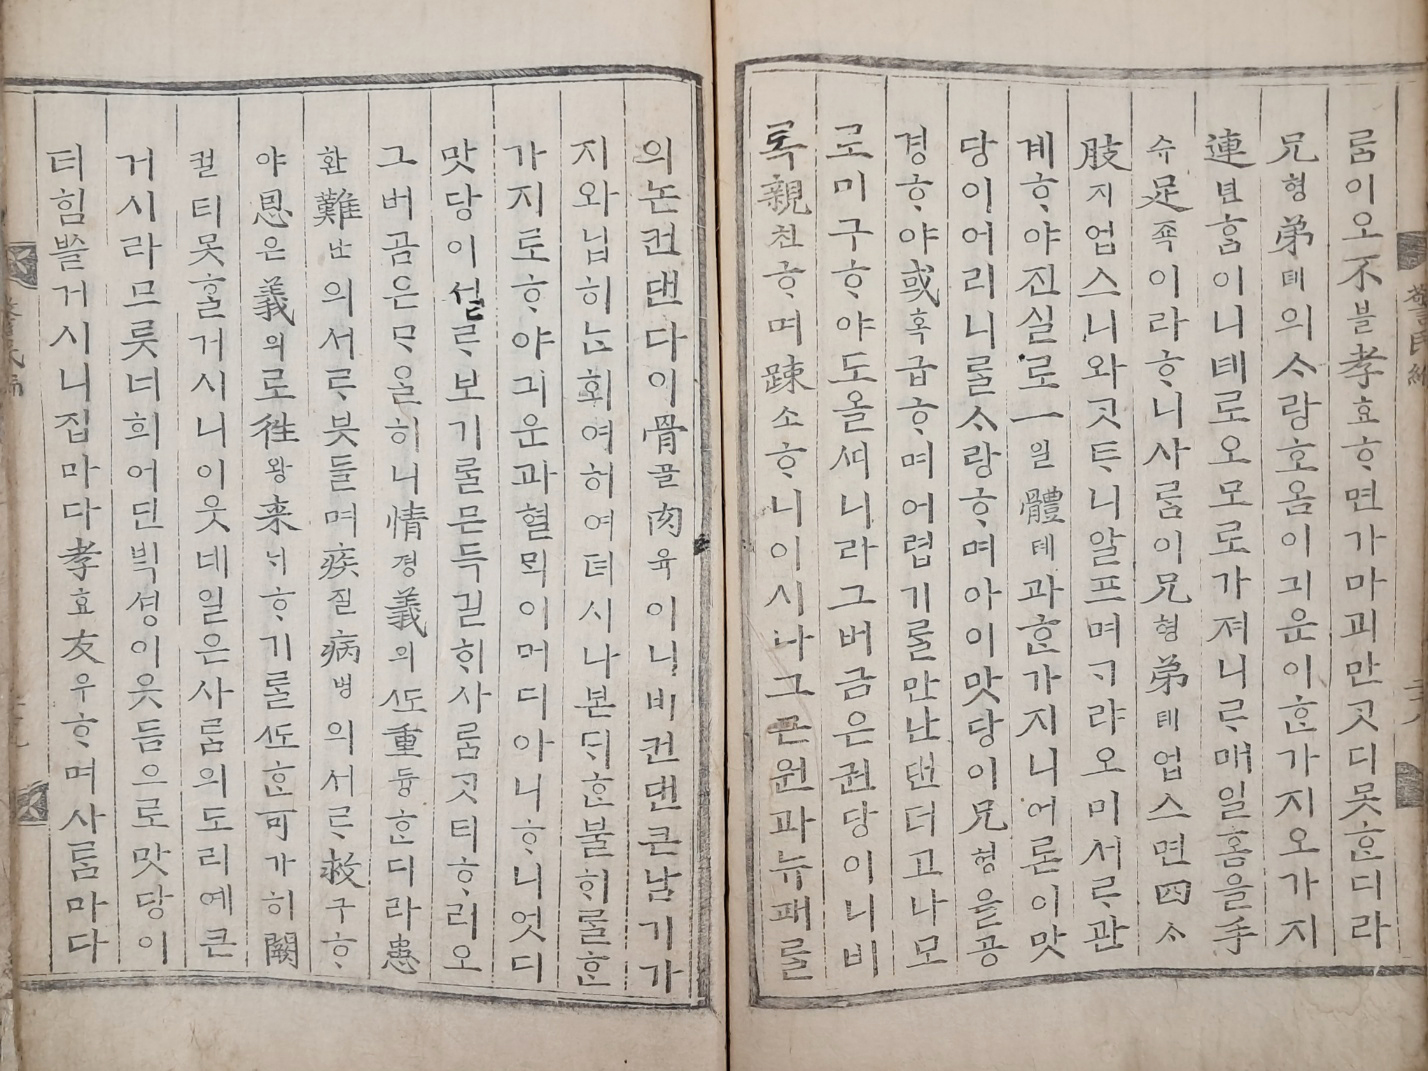 ᄅᆞᆷ이오不블孝효ᄒᆞ면가마괴만ᄀᆞᆺ디못ᄒᆞᆫ디라
兄형弟뎨의ᄉᆞ랑호옴이긔운이ᄒᆞᆫ가지오가지
連년홈이니톄로오모로가져니ᄅᆞ매일홈을手
슈足죡이라ᄒᆞ니사ᄅᆞᆷ이兄형弟뎨업스면四ᄉᆞ
肢지업스니와ᄀᆞᆺᄐᆞ니알프며ᄀᆞ랴오미서ᄅᆞ관
계ᄒᆞ야진실로一일體톄과ᄒᆞᆫ가지니어룬이맛
당이어리니ᄅᆞᆯᄉᆞ랑ᄒᆞ며아이맛당이兄형을공
경ᄒᆞ야或혹급ᄒᆞ며어렵기ᄅᆞᆯ만난댄더고나모
로미구ᄒᆞ야도올띠니라그버금은권당이니비
록親친ᄒᆞ며踈소ᄒᆞ니이시나그근원과뉴패ᄅᆞᆯ
의논컨댄다이骨골肉육이니비컨댄큰남기가
지와닙히ᄂᆞᆫ회여허여뎌시나본ᄃᆡᄒᆞᆫ불히ᄅᆞᆯᄒᆞᆫ
가지로ᄒᆞ야긔운과혈ᄆᆡᆨ이머디아니ᄒᆞ니엇디
맛당이설ᄅᆞ보기ᄅᆞᆯ믄득길ᄒᆡᆺ사ᄅᆞᆷᄀᆞᆺ티ᄒᆞ리오
그버곰은ᄆᆞᄋᆞᆯ히니情졍義의ᄯᅩ重듕ᄒᆞᆫ디라患
환難난의서ᄅᆞ븟들며疾질病병의서ᄅᆞ救구ᄒᆞ
야恩은義의로徃왕来ᄅᆡᄒᆞ기ᄅᆞᆯᄯᅩᄒᆞᆫ可가히闕
궐티못ᄒᆞᆯ거시니이웃네일은사ᄅᆞᆷ의도리예큰
거시라므릇너희어딘ᄇᆡᆨ셩이웃듬으로맛당이
더힘ᄡᅳᆯ거시니집마다孝효友우ᄒᆞ며사ᄅᆞᆷ마다